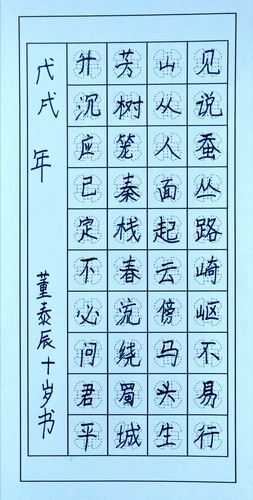 见说蚕丛路崎岖不易行
山从人面起云傍马头生
芳树笼秦栈春流绕蜀城
升沉应已定不必问君平
戊戌年 董泰辰十岁书